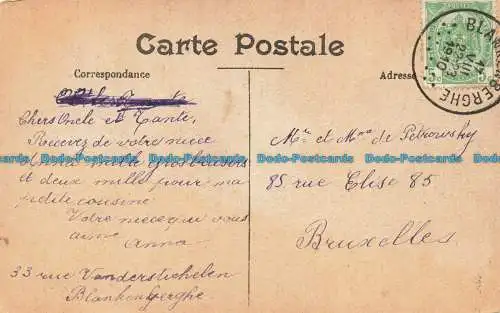 Carte Postale
Correspondance
Adresse
BLANKENBERGHE
Chers Oncle et Tante,
Recevez de votre niece
mille gros baisers
et deux mille pour ma
petite cousine
Votre niece qui vous
aime
Anna
33 rue Vanderstichelen
Blankenberghe
Mr et Mme de Pétrowsky
85 rue Elise 85
Bruxelles
Dodo-Postcards.com Dodo-Postcards.com Dodo-Postcards.com Dodo-Postcards.com